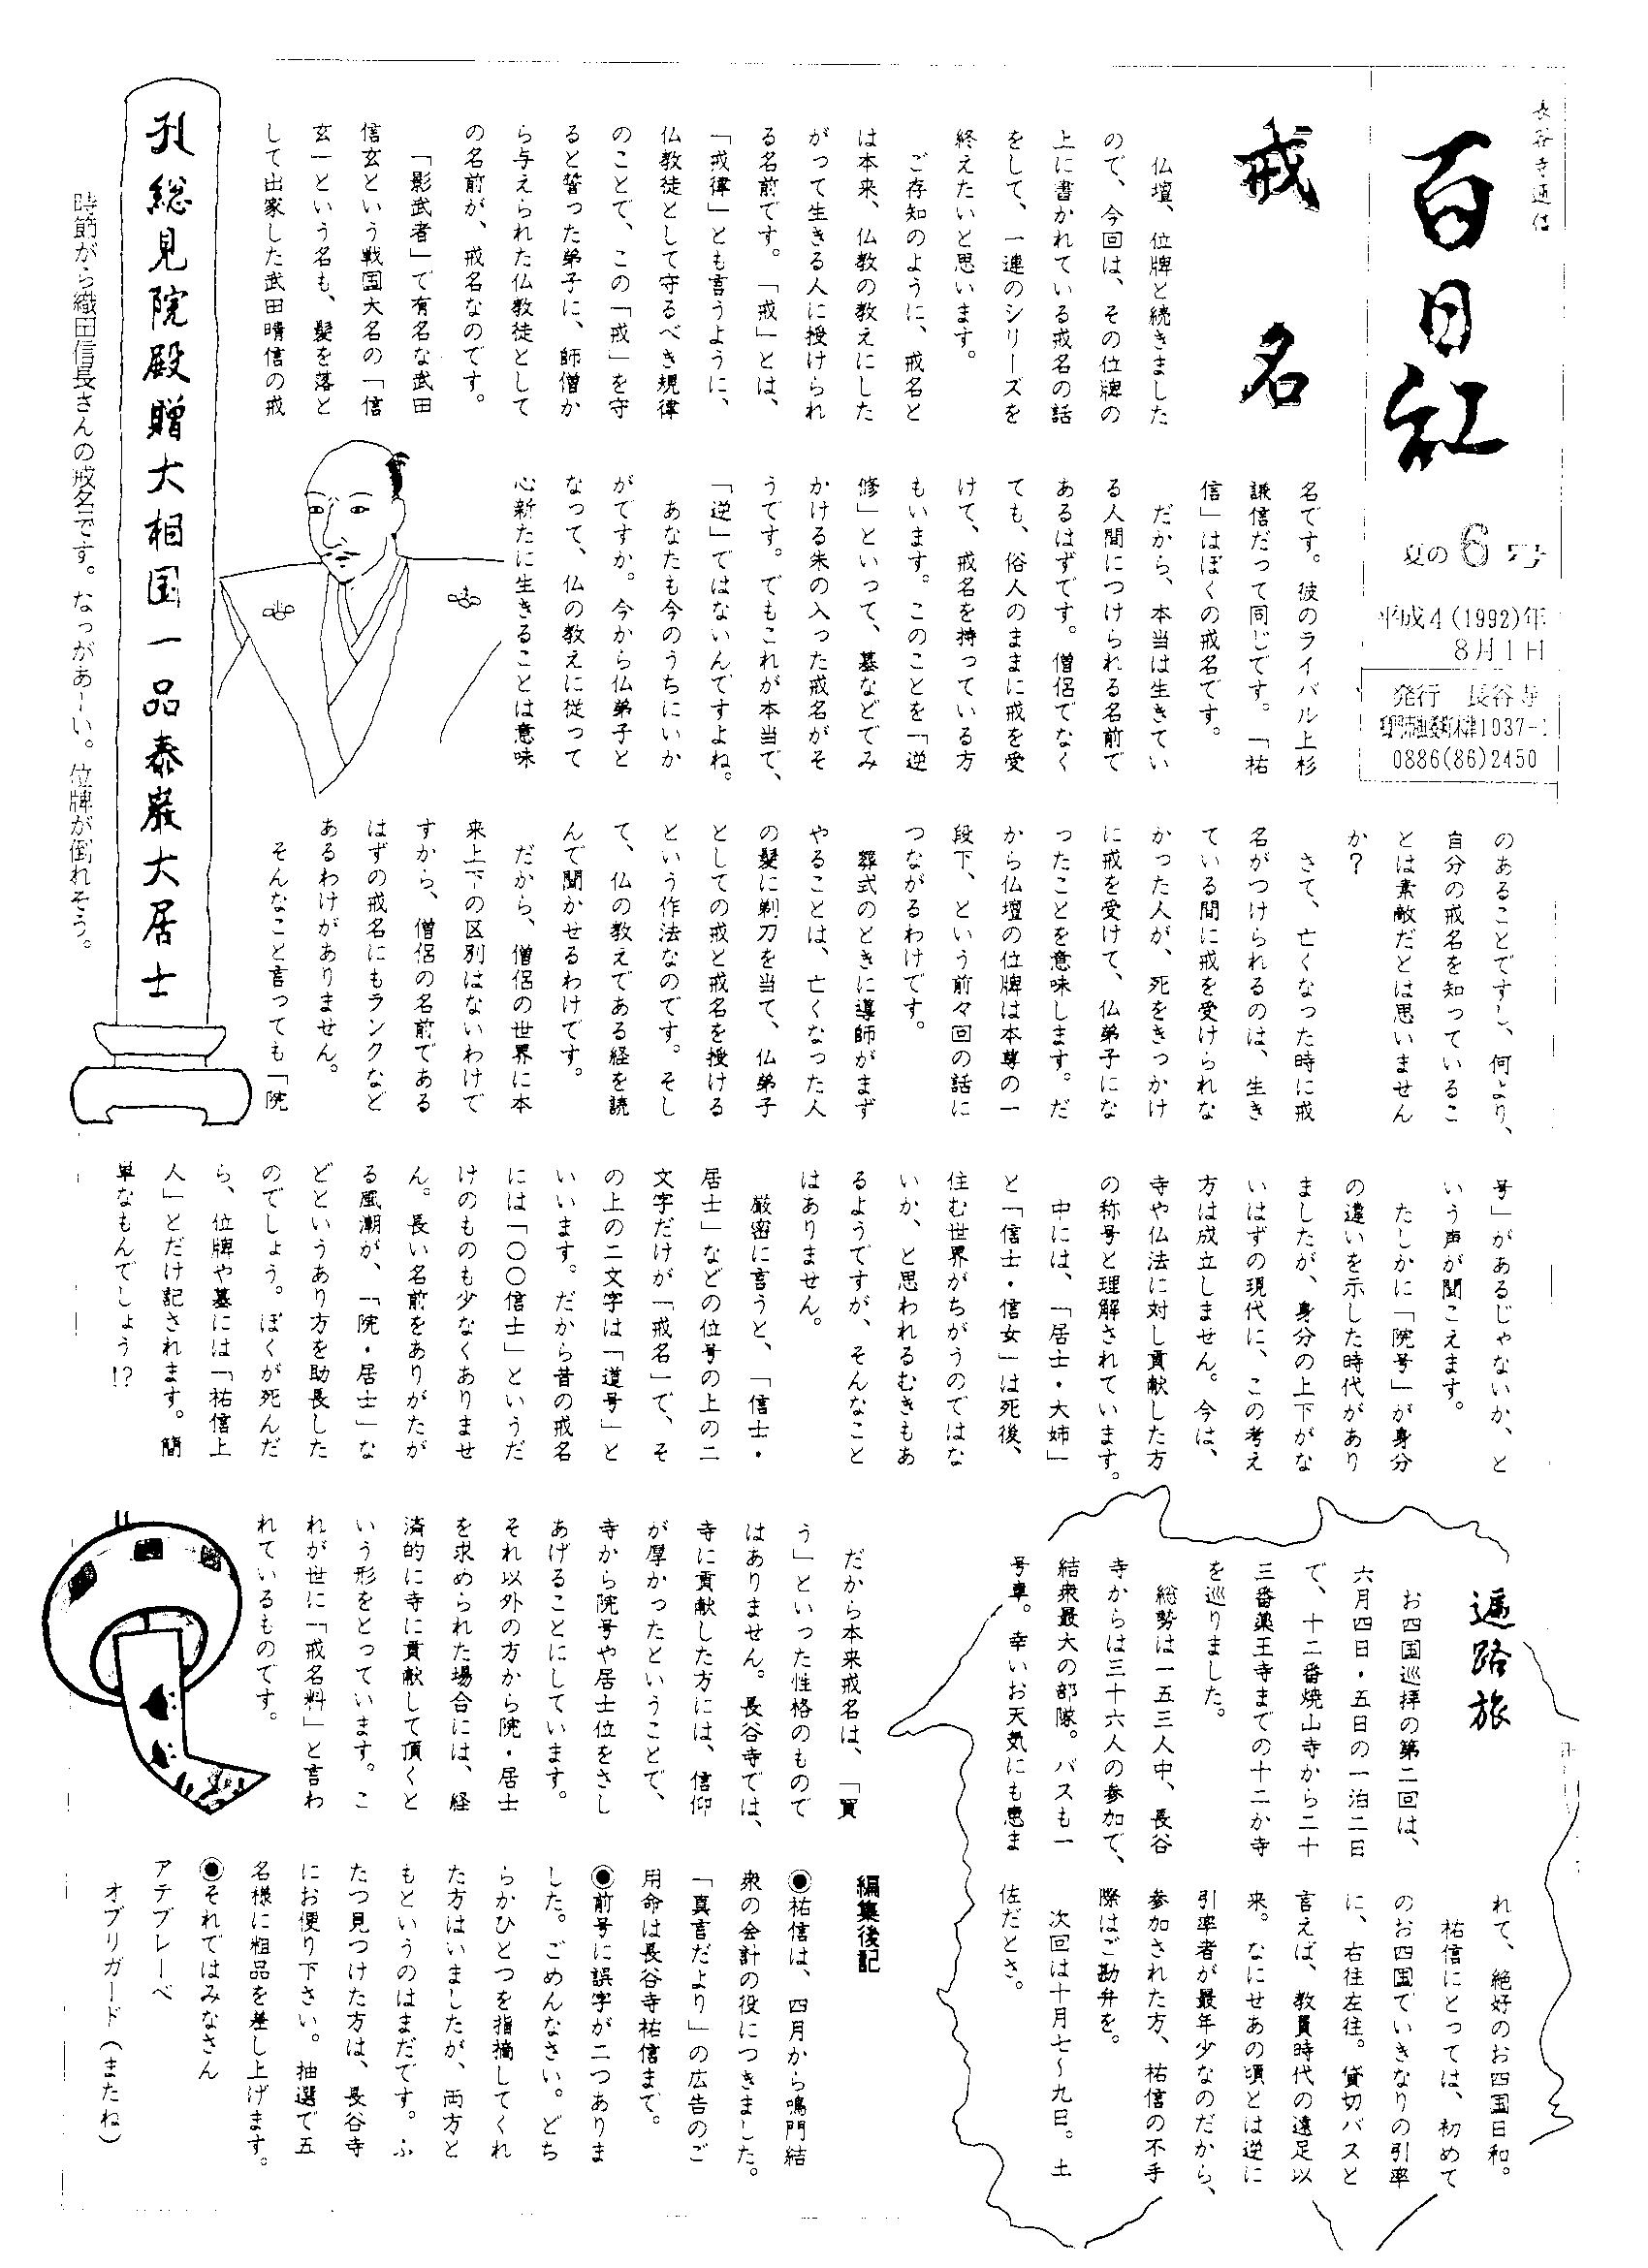 長谷寺通信
百日紅
夏の6号
平成4(1992)年
8月1日
発行 長谷寺
0886(86)2450
戒名
仏壇、位牌と続きました
ので、今回は、その位牌の
上に書かれている戒名の話
をして、一連のシリーズを
終えたいと思います。
ご存知のように、戒名と
は本来、仏教の教えにした
がって生きる人に授けられ
る名前です。「戒」とは、
「戒律」とも言うように、
仏教徒として守るべき規律
のことで、この「戒」を守
ると誓った弟子に、師僧か
ら与えられた仏教徒として
の名前が、戒名なのです。
「影武者」で有名な武田
信玄という戦国大名の「信
玄」という名も、髪を落と
して出家した武田晴信の戒
名です。彼のライバル上杉
謙信だって同じです。「祐
信」はぼくの戒名です。
だから、本当は生きてい
る人間につけられる名前で
あるはずです。僧侶でなく
ても、俗人のままに戒を受
けて、戒名を持っている方
もいます。このことを「逆
修」といって、墓などでみ
かける朱の入った戒名がそ
うです。でもこれが本当で、
「逆」ではないんですよね。
あなたも今のうちにいか
がですか。今から仏弟子と
なって、仏の教えに従って
心新たに生きることは意味
のあることですし、何より、
自分の戒名を知っているこ
とは素敵だとは思いません
か?
さて、亡くなった時に戒
名がつけられるのは、生き
ている間に戒を受けられな
かった人が、死をきっかけ
に戒を受けて、仏弟子にな
ったことを意味します。だ
から仏壇の位牌は本尊の一
段下、という前々回の話に
つながるわけです。
葬式のときに導師がまず
やることは、亡くなった人
の髪に剃刀を当て、仏弟子
としての戒と戒名を授ける
という作法なのです。そし
て、仏の教えである経を読
んで聞かせるわけです。
だから、僧侶の世界に本
来上下の区別はないわけで
すから、僧侶の名前である
はずの戒名にもランクなど
あるわけがありません。
そんなこと言っても「院
号」があるじゃないか、と
いう声が聞こえます。
たしかに「院号」が身分
の違いを示した時代があり
ましたが、身分の上下がな
いはずの現代に、この考え
方は成立しません。今は、
寺や仏法に対し貢献した方
の称号と理解されています。
中には、「居士・大姉」
と「信士・信女」は死後、
住む世界がちがうのではな
いか、と思われるむきもあ
るようですが、そんなこと
はありません。
厳密に言うと、「信士・
居士」などの位号の上の二
文字だけが「戒名」で、そ
の上の二文字は「道号」と
いいます。だから昔の戒名
には「〇〇信士」というだ
けのものも少なくありませ
ん。長い名前をありがたが
る風潮が、「院・居士」な
どというあり方を助長した
のでしょう。ぼくが死んだ
ら、位牌や墓には「祐信上
人」とだけ記されます。簡
単なもんでしょう!?
だから本来戒名は、「買
う」といった性格のもので
はありません。長谷寺では、
寺に貢献した方には、信仰
が厚かったということで、
寺から院号や居士位をさし
あげることにしています。
それ以外の方から院・居士
を求められた場合には、経
済的に寺に貢献して頂くと
いう形をとっています。こ
れが世に「戒名料」と言わ
れているものです。
孔総見院殿贈大相国一品泰巌大居士
時節がら織田信長さんの戒名です。なっがあーい。位牌が倒れそう。
遍路旅
お四国巡拝の第二回は、
六月四日・五日の一泊二日
で、十二番焼山寺から二十
三番薬王寺までの十二か寺
を巡りました。
総勢は一五三人中、長谷
寺からは三十六人の参加で、
結衆最大の部隊。バスも一
号車。幸いお天気にも恵ま
れて、絶好のお四国日和。
祐信にとっては、初めて
のお四国でいきなりの引率
に、右往左往。貸切バスと
言えば、教員時代の遠足以
来。なにせあの頃とは逆に
引率者が最年少なのだから、
参加された方、祐信の不手
際はご勘弁を。
次回は十月七〜九日。土
佐だとさ。
編集後記
◉祐信は、四月から鳴門結
衆の会計の役につきました。
「真言だより」の広告のご
用命は長谷寺祐信まで。
◉前号に誤字が二つありま
した。ごめんなさい。どち
らかひとつを指摘してくれ
た方はいましたが、両方と
もというのはまだです。ふ
たつ見つけた方は、長谷寺
にお便り下さい。抽選で五
名様に粗品を差し上げます。
◉それではみなさん
アテブレーベ
オブリガード(またね)